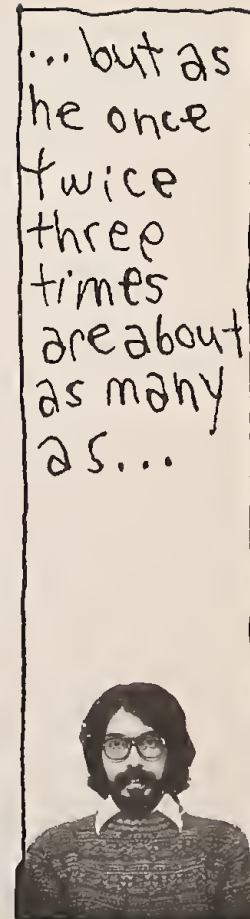 ... but as
he once
twice
three
times
are about
as many
as...